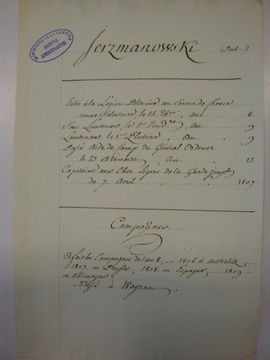 MINISTERE DE LA GUERRE
ARCHIVES
ADMINISTRATIVES
Jerzmanowski
Entré à la Légion Polonaise au Service de France
comme Volontaire le 14 ... an 8.
Sous Lieutenant, le 1er Vend.re, an 9
Lieutenant le 1er Pluviose an 9
Passé Aide de Camp du Général Ordener
le 23 Brumaire, an 13
Capitaine aux Chev. Légers de la Garde
du 7 Avril 1807.
Campagnes.
A fait les Campagnes de l'an 8, - 1806 à Austerlitz
1807. en Prusse, 1808. en Espagne, - 1809 -
en Allemagne.
Blessé à Wagram